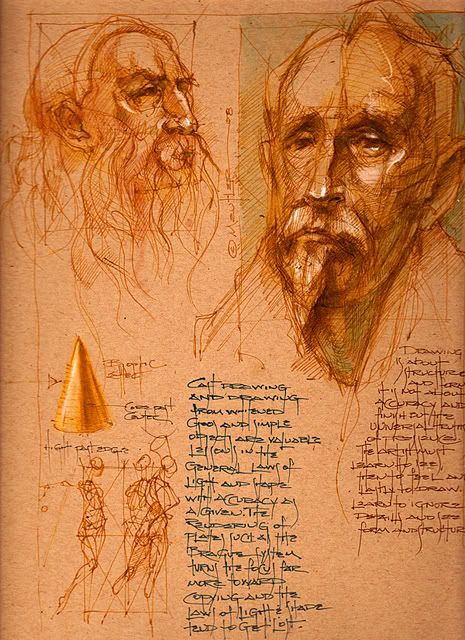 © Mentler
CAST DRAWING
AND DRAWING
FROM WHITENED
GEOS AND SIMPLE
OBJECTS ARE VALUABLE
LESSONS IN THE
GENERAL LAWS OF
LIGHT AND SHADE
WITH ACCURACY AS
A GIVEN. THE
RENDERING OF
PLATES SUCH AS THE
BARGUE SYSTEM
TURNS THE FOCUS FAR
MORE TOWARD
COPYING AND THE
LAWS OF LIGHT & SHADE
TEND TO GET LOST.
DRAWING
IS ABOUT
STRUCTURE
AND FORM
IT IS NOT ABOUT
ACCURACY AND
FINISH BUT THE
UNIVERSAL TRUTHS
OF
THE ARTIST MUST
LEARN TO SEE,
THEN TO FEEL AND
LASTLY TO DRAW.
LEARN TO IGNORE
DETAILS AND SEE
FORM AND STRUCTURE